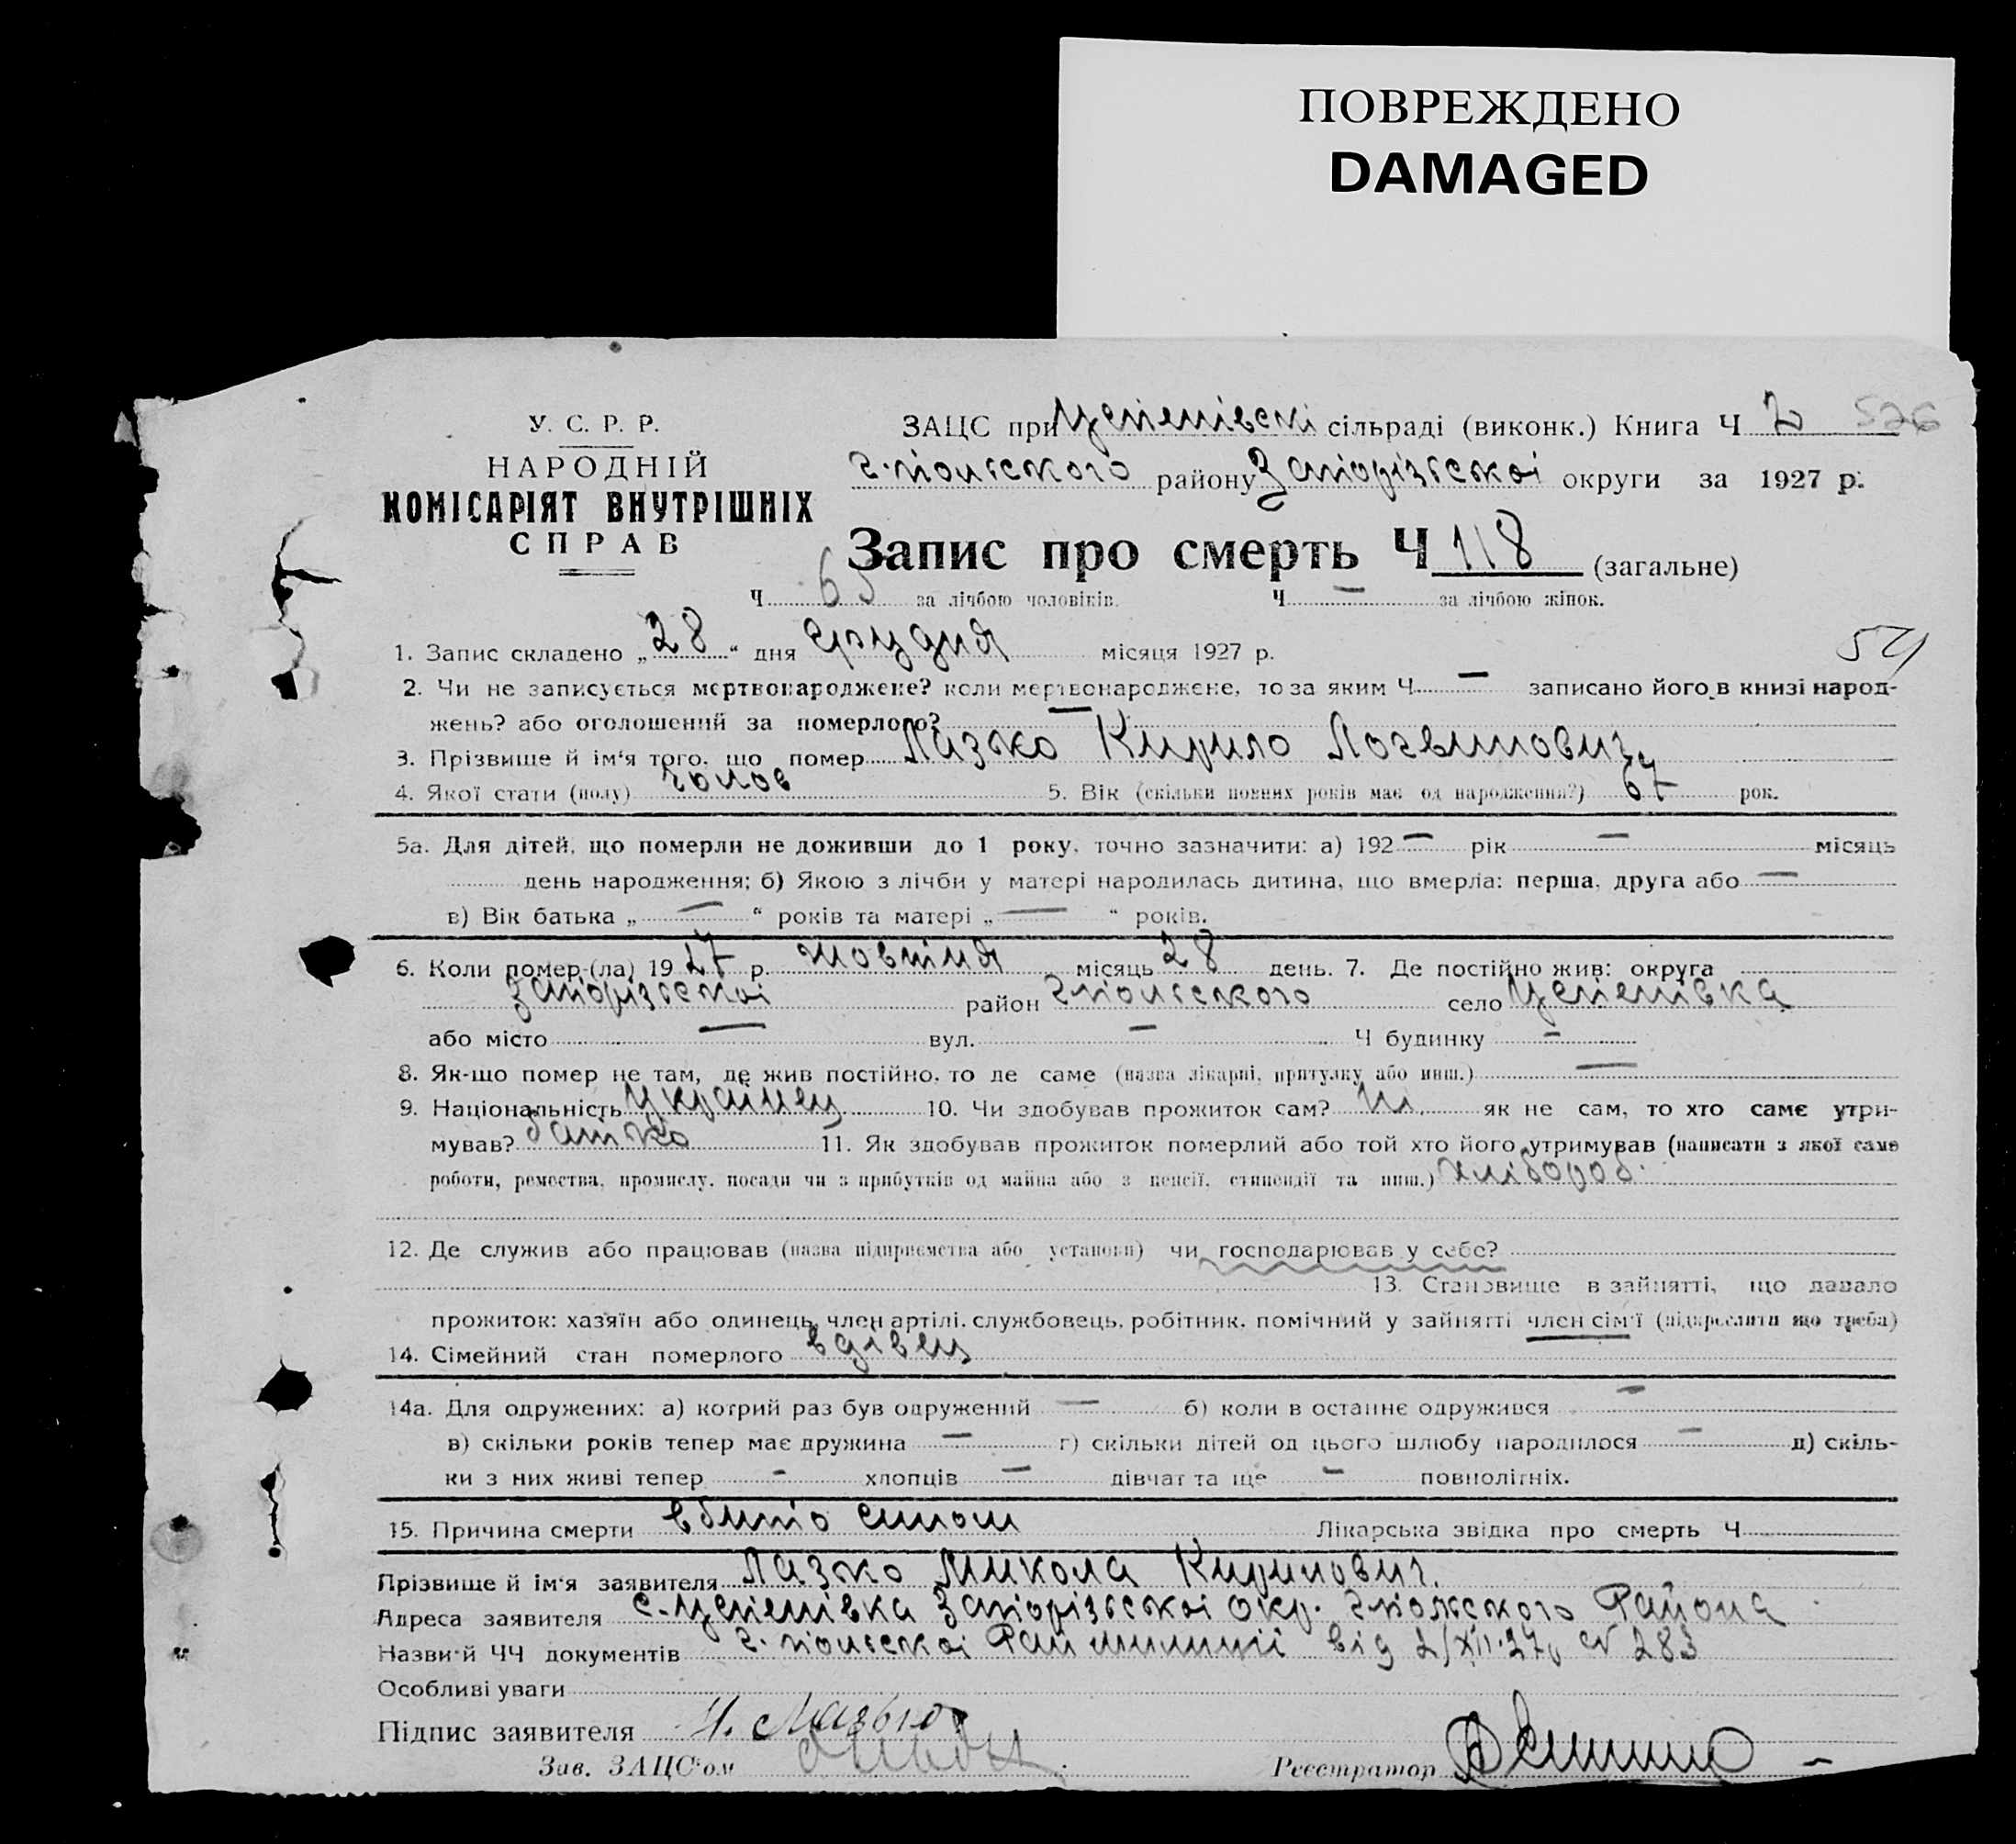 ПОВРЕЖДЕНО
DAMAGED
У. С. Р. Р.
НАРОДНІЙ
КОМІСАРІЯТ ВНУТРІШНІХ
СПРАВ
ЗАЦС при Успенівскі сільраді (виконк.) Книга Ч 2 526
г-польского району Запорізьскоі округи за 1927 р.
Запис про смерть Ч 118 (загальне)
Ч 65 за лічбою чоловіків. Ч — за лічбою жінок.
1. Запис складено „28“ дня грудня місяця 1927 р. 54
2. Чи не записується мертвонароджене? коли мертвонароджене, то за яким Ч — записано його в книзі народ-
жень? або оголошений за померлого? —
3. Прізвище й ім'я того, що помер Лазько Кирило Логвинович
4. Якої стати (полу) чолов 5. Вік (скільки повних років має од народження?) 67 рок.
5а. Для дітей, що померли не доживши до 1 року, точно зазначити: а) 192 — рік — місяць
день народження; б) Якою з лічби у матері народилась дитина, що вмерла: перша, друга або —
в) Вік батька „ — “ років та матері „ — “ років.
6. Коли помер-(ла) 1927 р. жовтня місяць 28 день. 7. Де постійно жив: округа
Запорізьскоі район г-польського село Успенівка
або місто — вул. — Ч будинку —
8. Як-що помер не там, де жив постійно, то де саме (назва лікарні, притулку або инш.) —
9. Національність українец 10. Чи здобував прожиток сам? ні. як не сам, то хто саме утри-
мував? батько 11. Як здобував прожиток померлий або той хто його утримував (написати з якої саме
роботи, ремества, промислу, посади чи з прибутків од майна або з пенсії, стипендії та инш.) хлібороб.
12. Де служив або працював (назва підприємства або установи) чи господарював у себе?
13. Становище в зайнятті, що давало
прожиток: хазяїн або одинець, член артілі, службовець, робітник, помічний у зайнятті член сім'ї (підкреслити що треба)
14. Сімейний стан померлого вдівец
14а. Для одружених: а) котрий раз був одружений — б) коли в останнє одружився —
в) скільки років тепер має дружина — г) скільки дітей од цього шлюбу народилося — д) скіль-
ки з них живі тепер - хлопців — дівчат та ще - повнолітніх.
15. Причина смерти вбито сином Лікарська звідка про смерть Ч
Прізвище й ім'я заявителя Лазько Микола Кирилович.
Адреса заявителя с. Успенівка Запорізьскоі Окр. г-польского Района
Назви й ЧЧ документів г. польскоі Рай милиціі від 2/XII-27р № 283
Особливі уваги
Підпис заявителя Н. Лазько
Зав. ЗАЦС'ом
Реєстратор